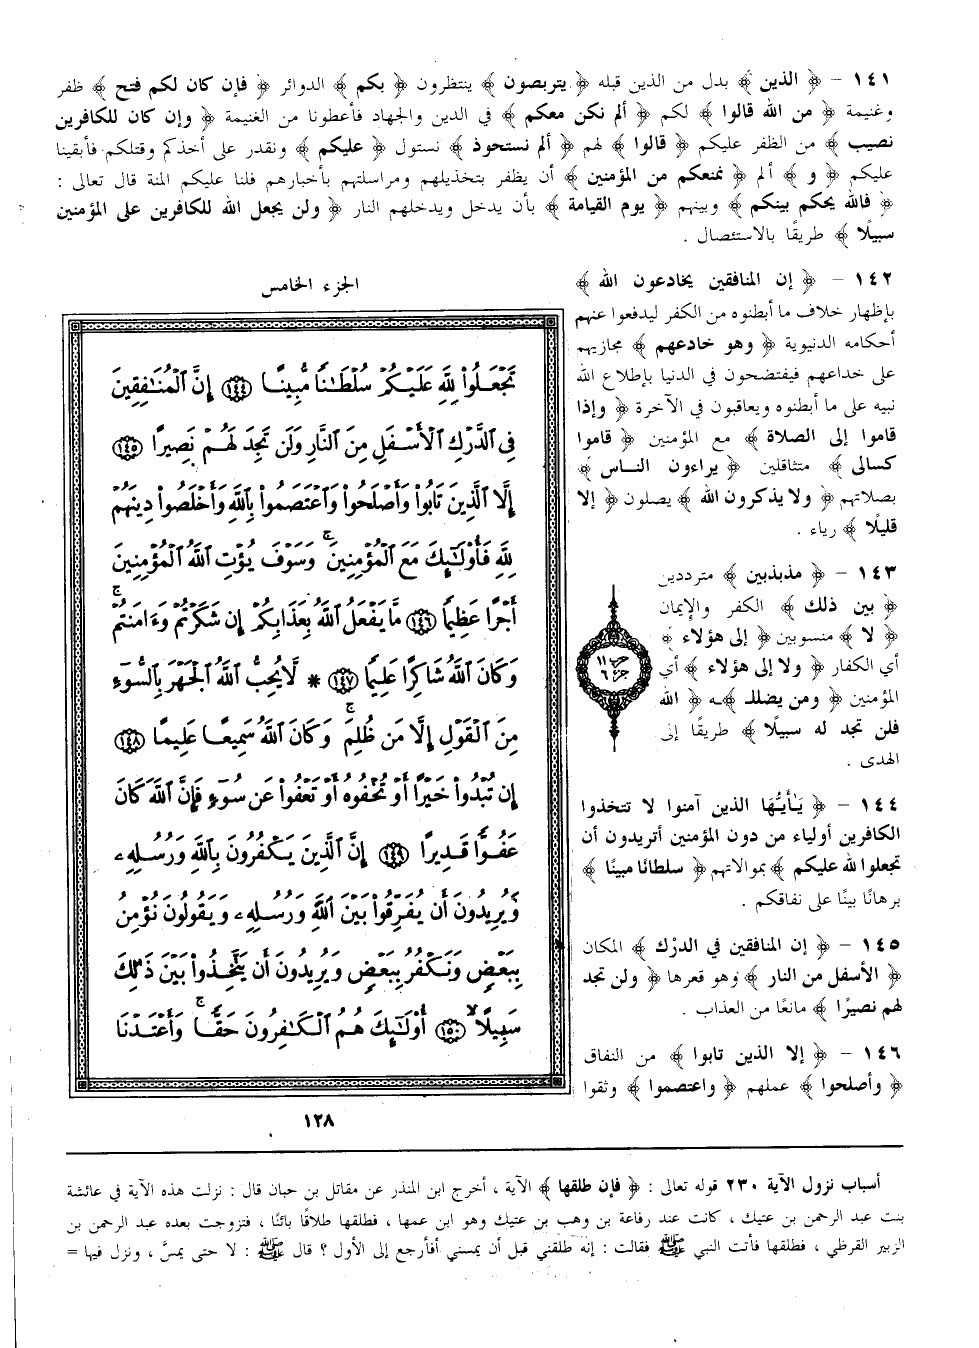 ١٤١ – ﴿ الذين ﴾ بدل من الذين قبله ﴿ يتربصون ﴾ ينتظرون ﴿ بكم ﴾ الدوائر ﴿ فإن كان لكم فتح ﴾ ظفر
وغنيمة ﴿ من الله قالوا ﴾ لكم ﴿ ألم نكن معكم ﴾ في الدين والجهاد فأعطونا من الغنيمة ﴿ وإن كان للكافرين
نصيب ﴾ من الظفر عليكم ﴿ قالوا ﴾ لهم ﴿ ألم نستحوذ ﴾ نستول ﴿ عليكم ﴾ ونقدر على أخذكم وقتلكم فأبقينا
عليكم ﴿ و ﴾ ألم ﴿ نمنعكم من المؤمنين ﴾ أن يظفر بتخذيلهم ومراسلتهم بأخبارهم فلنا عليكم المنة قال تعالى :
﴿ فالله يحكم بينكم ﴾ وبينهم ﴿ يوم القيامة ﴾ بأن يدخل ويدخلهم النار ﴿ ولن يجعل الله للكافرين على المؤمنين
سبيلًا ﴾ طريقًا بالاستئصال .
١٤٢ – ﴿ إن المنافقين يخادعون الله ﴾
بإظهار خلاف ما أبطنوه من الكفر ليدفعوا عنهم
أحكامه الدنيوية ﴿ وهو خادعهم ﴾ مجازيهم
على خداعهم فيفتضحون في الدنيا بإطلاع الله
نبيه على ما أبطنوه ويعاقبون في الآخرة ﴿ وإذا
قاموا إلى الصلاة ﴾ مع المؤمنين ﴿ قاموا
كسالى ﴾ متثاقلين ﴿ يراءون الناس ﴾
بصلاتهم ﴿ ولا يذكرون الله ﴾ يصلون ﴿ إلا
قليلًا ﴾ رياء .
١٤٣ – ﴿ مذبذبين ﴾ مترددين
﴿ بين ذلك ﴾ الكفر والإيمان
﴿ لا ﴾ منسوبين ﴿ إلى هؤلاء ﴾
أي الكفار ﴿ ولا إلى هؤلاء ﴾ أي
المؤمنين ﴿ ومن يضلل ﴾ـه ﴿ الله
فلن تجد له سبيلًا ﴾ طريقًا إلى
الهدى .
١٤٤ – ﴿ يَـٰأيـُّها الذين آمنوا لا تتخذوا
الكافرين أولياء من دون المؤمنين أتريدون أن
تجعلوا لله عليكم ﴾ بموالاتهم ﴿ سلطانًا مبينًا ﴾
برهانًا بينًا على نفاقكم .
١٤٥ – ﴿ إن المنافقين في الدرْك ﴾ المكان
﴿ الأسفل من النار ﴾ وهو قعرها ﴿ ولن تجد
لهم نصيرًا ﴾ مانعًا من العذاب .
١٤٦ – ﴿ إلا الذين تابوا ﴾ من النفاق
﴿ وأصلحوا ﴾ عملهم ﴿ واعتصموا ﴾ وثقوا
الجزء الخامس
تَجْعَلُوا۟ لِلَّهِ عَلَيْكُمْ سُلْطَـٰنًا مُّبِينًا ﴿١٤٤﴾ إِنَّ ٱلْمُنَـٰفِقِينَ
فِى ٱلدَّرْكِ ٱلْأَسْفَلِ مِنَ ٱلنَّارِ وَلَن تَجِدَ لَهُمْ نَصِيرًا ﴿١٤٥﴾
إِلَّا ٱلَّذِينَ تَابُوا۟ وَأَصْلَحُوا۟ وَٱعْتَصَمُوا۟ بِٱللَّهِ وَأَخْلَصُوا۟ دِينَهُمْ
لِلَّهِ فَأُو۟لَـٰٓئِكَ مَعَ ٱلْمُؤْمِنِينَ ۖ وَسَوْفَ يُؤْتِ ٱللَّهُ ٱلْمُؤْمِنِينَ
أَجْرًا عَظِيمًا ﴿١٤٦﴾ مَّا يَفْعَلُ ٱللَّهُ بِعَذَابِكُمْ إِن شَكَرْتُمْ وَءَامَنتُمْ ۚ
وَكَانَ ٱللَّهُ شَاكِرًا عَلِيمًا ﴿١٤٧﴾ * لَّا يُحِبُّ ٱللَّهُ ٱلْجَهْرَ بِٱلسُّوٓءِ
مِنَ ٱلْقَوْلِ إِلَّا مَن ظُلِمَ ۚ وَكَانَ ٱللَّهُ سَمِيعًا عَلِيمًا ﴿١٤٨﴾
إِن تُبْدُوا۟ خَيْرًا أَوْ تُخْفُوهُ أَوْ تَعْفُوا۟ عَن سُوٓءٍ فَإِنَّ ٱللَّهَ كَانَ
عَفُوًّا قَدِيرًا ﴿١٤٩﴾ إِنَّ ٱلَّذِينَ يَكْفُرُونَ بِٱللَّهِ وَرُسُلِهِۦ
وَيُرِيدُونَ أَن يُفَرِّقُوا۟ بَيْنَ ٱللَّهِ وَرُسُلِهِۦ وَيَقُولُونَ نُؤْمِنُ
بِبَعْضٍ وَنَكْفُرُ بِبَعْضٍ وَيُرِيدُونَ أَن يَتَّخِذُوا۟ بَيْنَ ذَٰلِكَ
سَبِيلًا ﴿١٥٠﴾ أُو۟لَـٰٓئِكَ هُمُ ٱلْكَـٰفِرُونَ حَقًّا ۚ وَأَعْتَدْنَا
حزب ١١
جزء ٦
١٢٨
أسباب نزول الآية ٢٣٠ قوله تعالى : ﴿ فإن طلقها ﴾ الآية ، أخرج ابن المنذر عن مقاتل بن حبان قال : نزلت هذه الآية في عائشة
بنت عبد الرحمن بن عتيك ، كانت عند رفاعة بن وهب بن عتيك وهو ابن عمها ، فطلقها طلاقًا بائنًا ، فتزوجت بعده عبد الرحمن بن
الزبير القرظي ، فطلقها فأتت النبي ﷺ فقالت : إنه طلقني قبل أن يمسني أفأرجع إلى الأول ؟ قال ﷺ : لا حتى يمسَّ ، ونزل فيها =